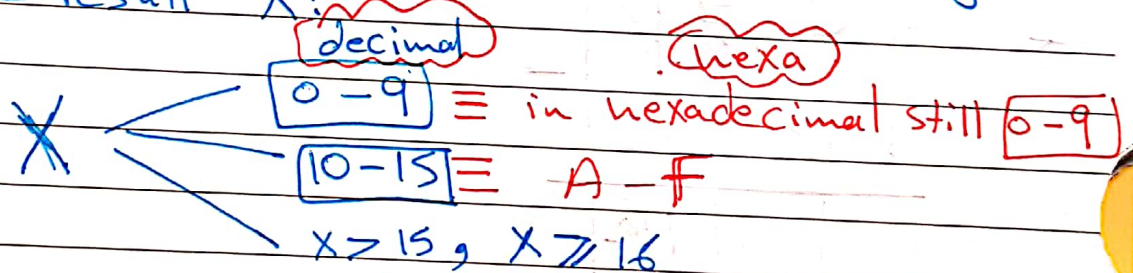 decimal hexa
X 0-9 ≡ in hexadecimal still 0-9
10-15 ≡ A-F
X > 15, X ⩾ 16